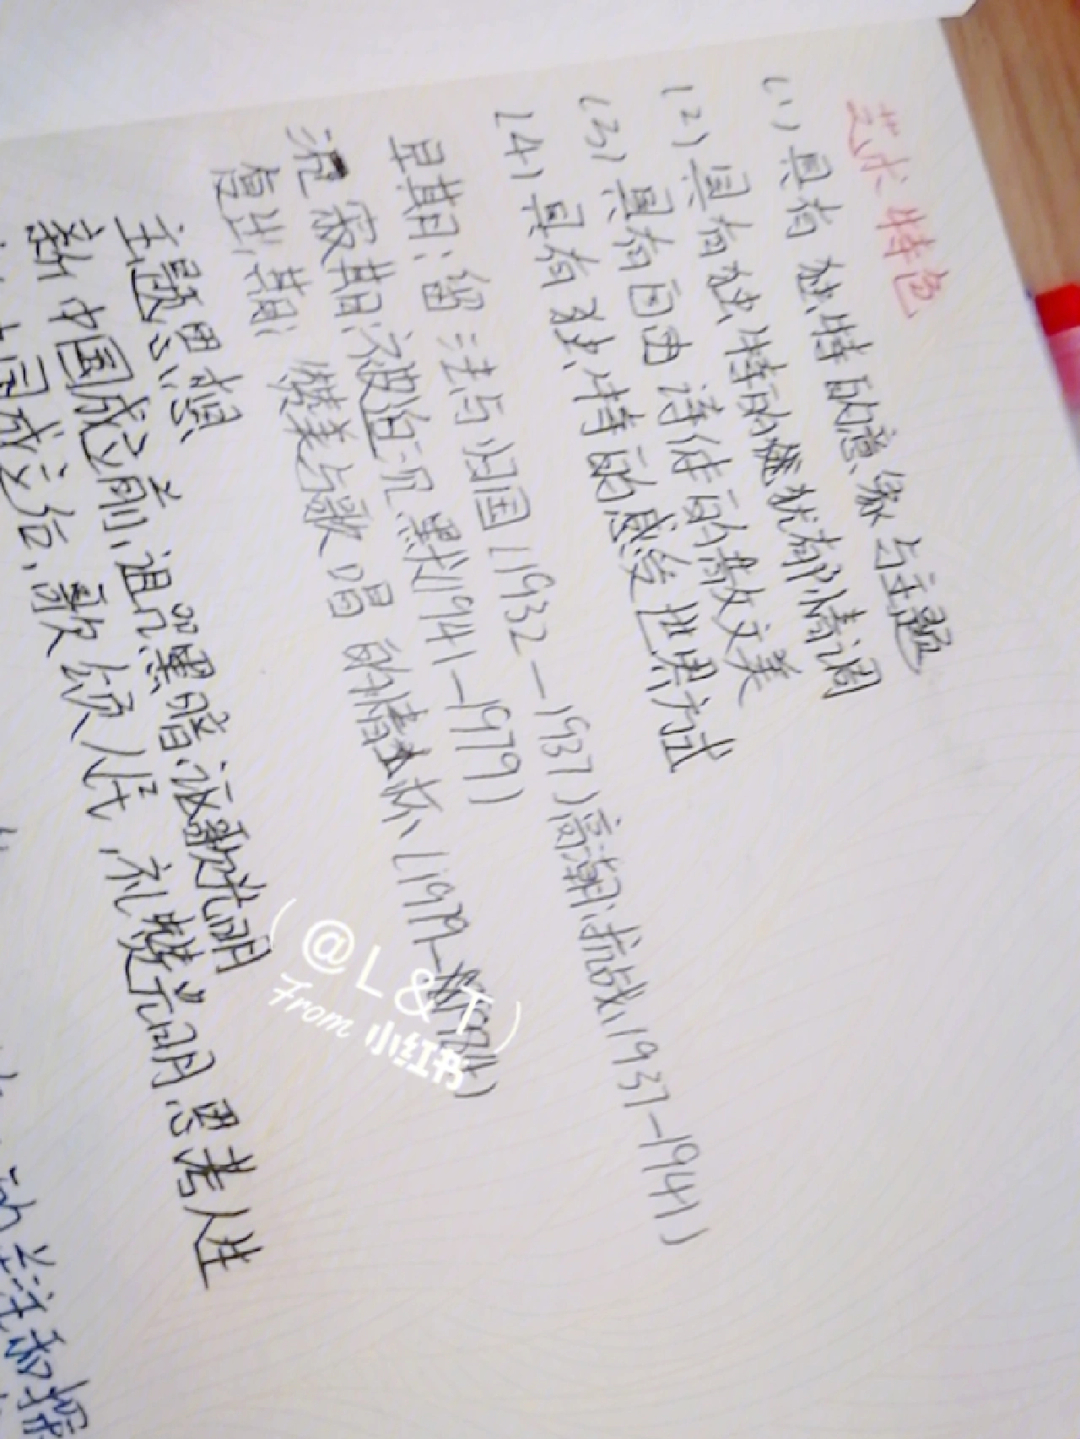 艺术特色
(1)具有独特的意象与主题
(2)具有独特的忧郁情调
(3)具有自由诗体的散文美
(4)具有独特的感受世界方式
早期:留法与归国(1932-1937)高潮:抗战(1937-1941)
沉寂期:被迫沉默(1941-1979)
复出期:赞美与歌唱的情怀(1979-
主题思想
新中国成立前,诅咒黑暗,讴歌光明
中国成立后,歌颂人民,礼赞光明,思考人生
(@L&T)
From 小红书